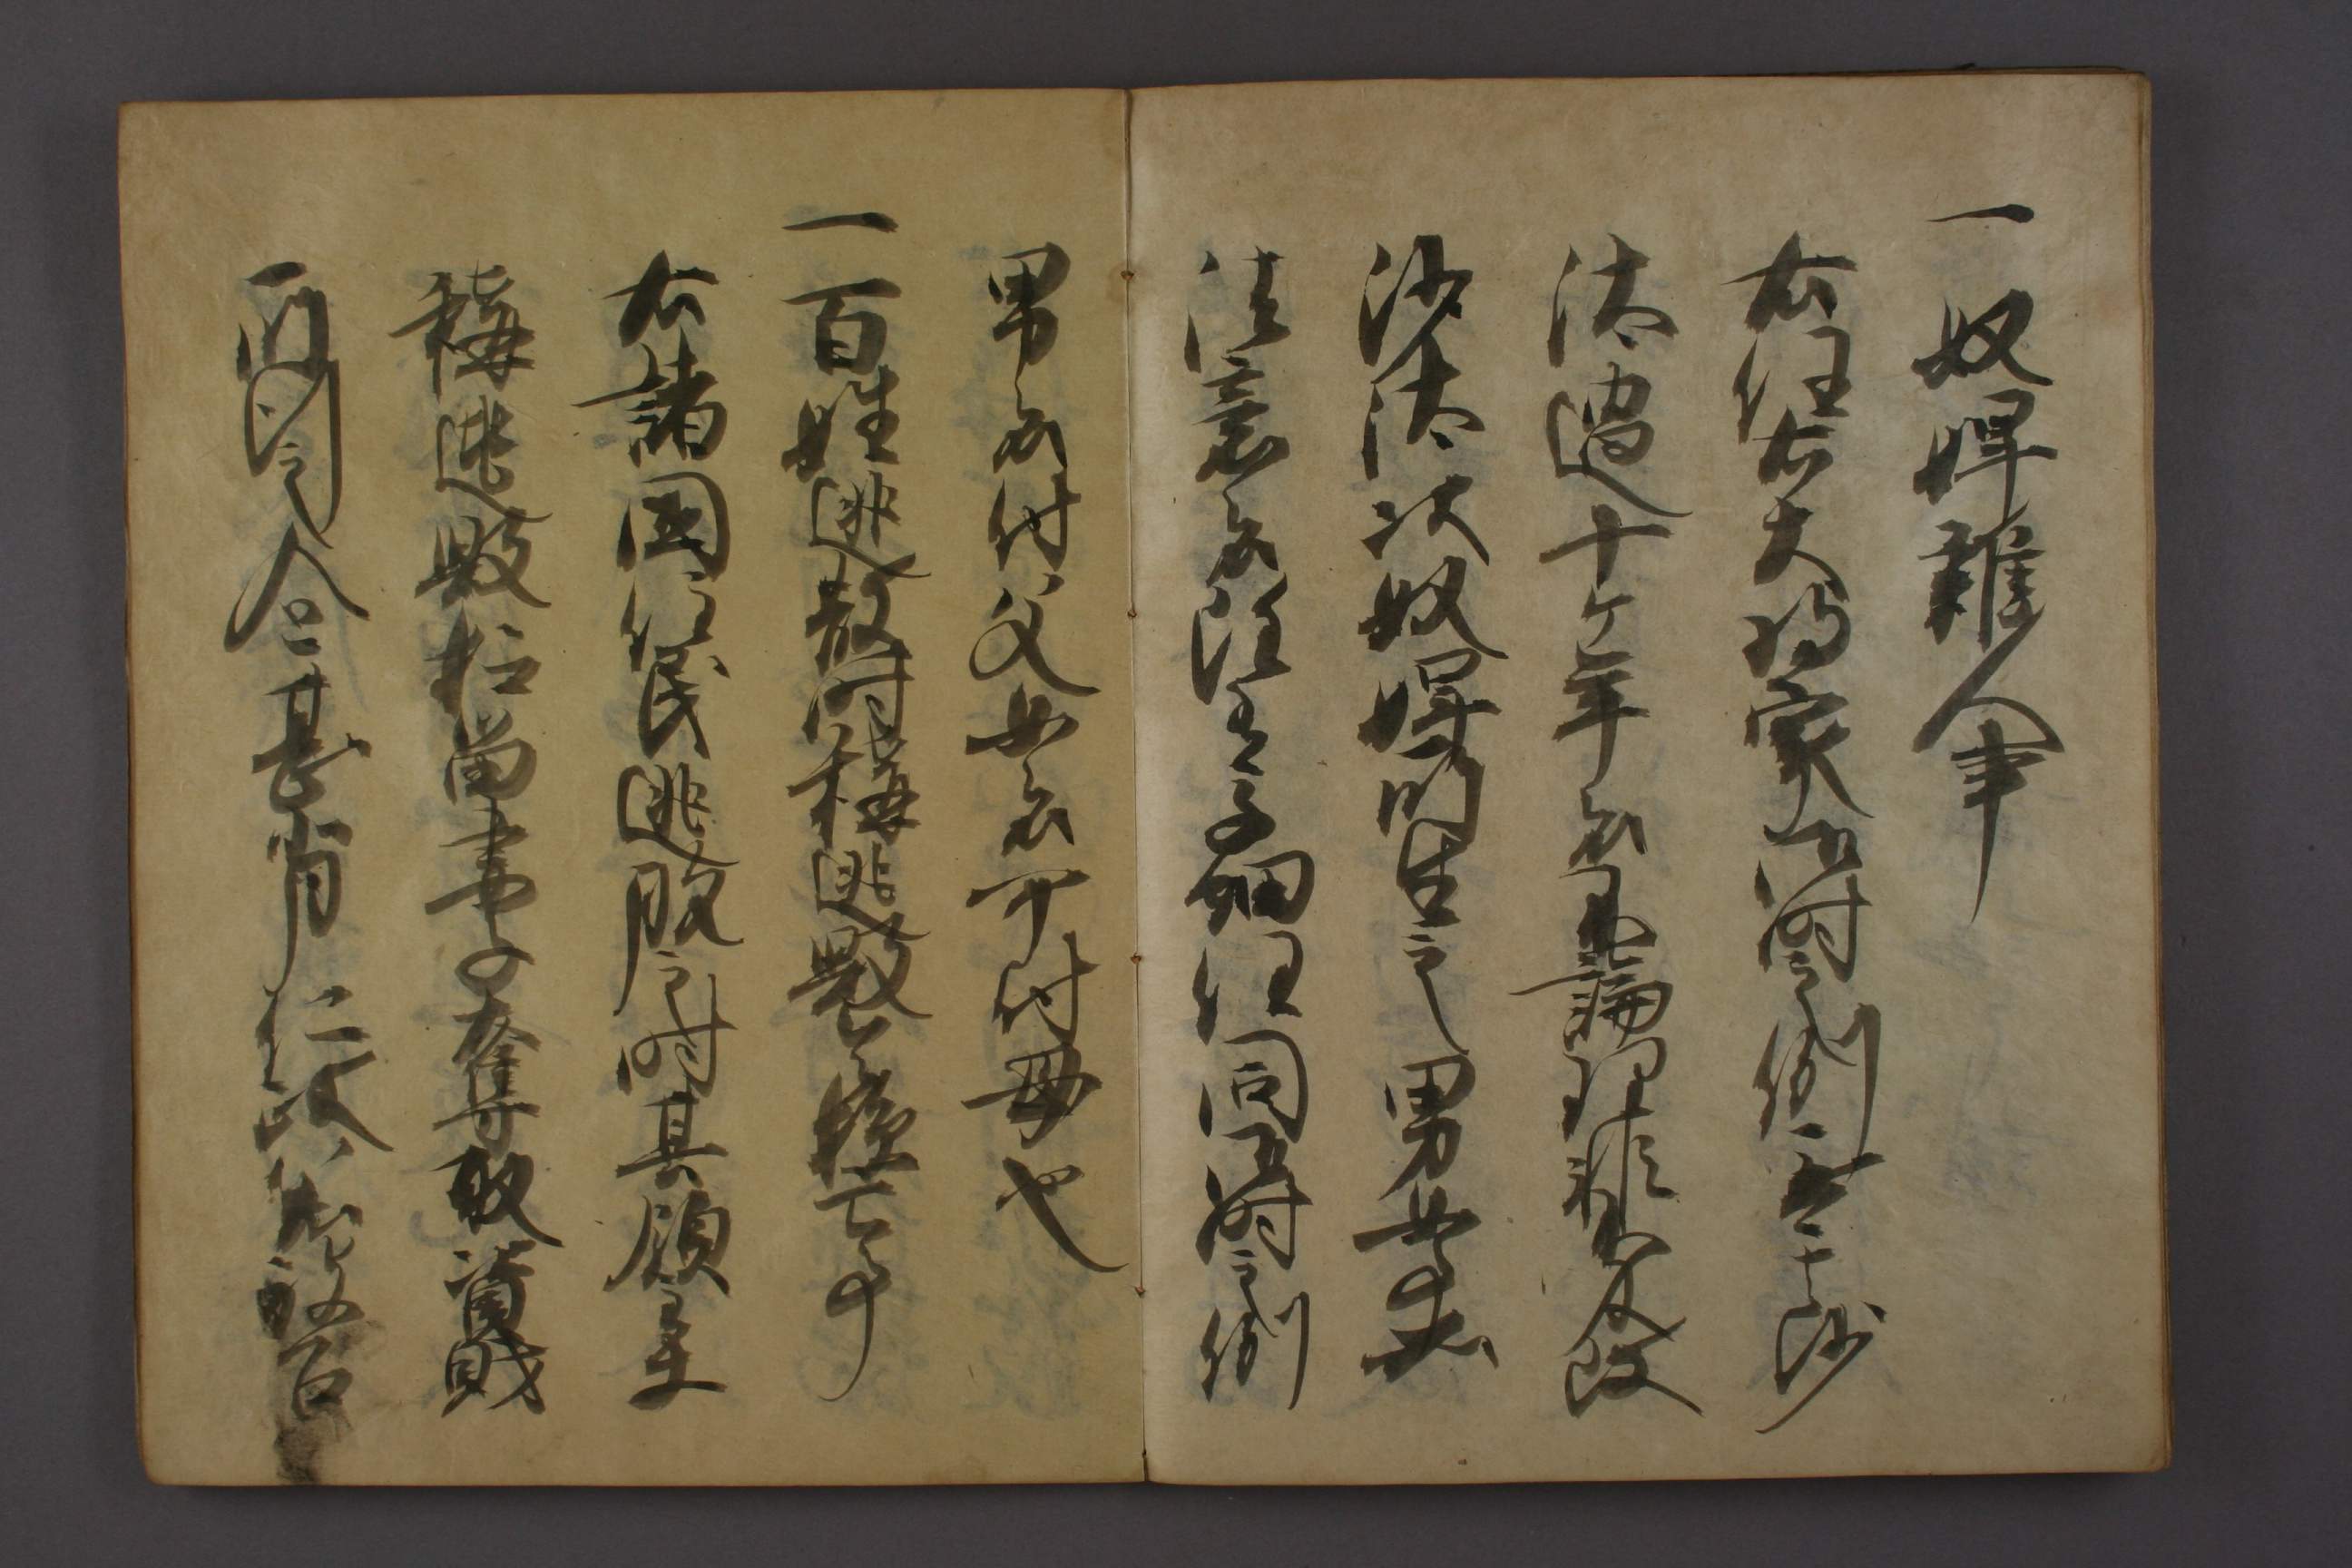 一奴婢雑人事
右任右大将家御時之例無其沙
汰過十ケ年者不論理非不及改
沙汰次奴婢所生之男女事如
法意者雖有子細任同御時之例
男者付父女者可付母也
一百姓逃散時称逃毀令損亡事
右諸国住民逃脱之時其領主
称逃毀抑留妻子奪取資財
所行之企甚背仁政若被召